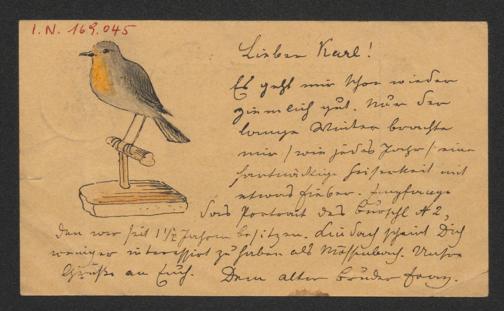 I.N. 169.045
Lieber Karl!
Es geht mir schon wieder
ziemlich gut. Nur der
lange Winter brachte
mir / wie jedes Jahr / eine
hartnäckige Heiserkeit mit
etwas Fieber. Empfange
das Portrait des Burschl No 2,
den wir seit 1½ Jahren besitzen. Die Sach scheint Dich
weniger interessirt zu haben als Unsre
Grüße an Euch. Dein alter Bruder Franz.